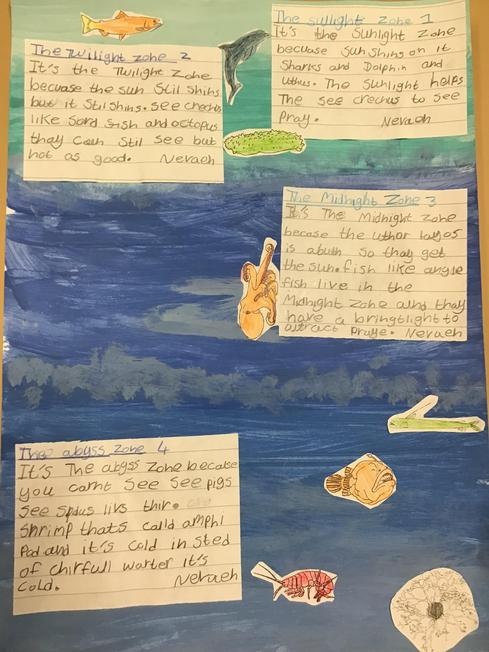 The sullight zone 1
It's the Sunlight Zone
becuase Sun Shins on it
Sharks and Dolphin and
Uthus. The Sunlight helps
The see crechus to See
Pray. Nevaeh
The Twilight zone 2
It's the Twilight Zone
becuase the sun Stil Shins
but it Stil Shins. See crechus
like Sord fish and octopus
thay can Stil See but
not as good. Nevaeh
The Midnight Zone 3
It's The Midnight Zone
becase the uthor layes
is abuth so thay get
the sun. fish like angle
fish live in the
Midnight Zone and thay
have a bringtlight to
attract Praye. Nevaeh
The abyss zone 4
It's The abyss Zone because
you carnt See See pigs
See Spdus livs thir.
Shrimp thats calld amphi
Pod and it's Cold in sted
of chirfull warter it's
Cold. Nevaeh